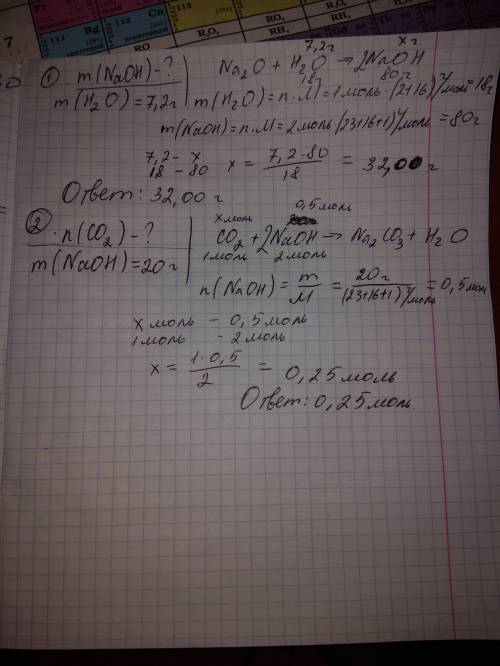 7
Fr
111 Rg
112 Cn
113
RO
R₂O₃
RO₂
RH₄
① m(NaOH) - ?
m(H₂O) = 7,2г
7,2г xг
Na₂O + H₂O → 2NaOH
18г 80г
m(H₂O) = n·M = 1моль·(2+16)г/моль = 18г
m(NaOH) = n·M = 2моль(23+16+1)г/моль = 80г
7,2 - x
18 - 80
x = 7,2·80 / 18 = 32,00 г
Ответ: 32,00 г
② n(CO₂) - ?
m(NaOH) = 20 г
x моль 0,5 моль
CO₂ + 2NaOH → Na₂CO₃ + H₂O
1моль 2 моль
n(NaOH) = m/M = 20г / (23+16+1)г/моль = 0,5 моль
x моль - 0,5 моль
1 моль - 2 моль
x = 1·0,5 / 2 = 0,25 моль
Ответ: 0,25 моль.